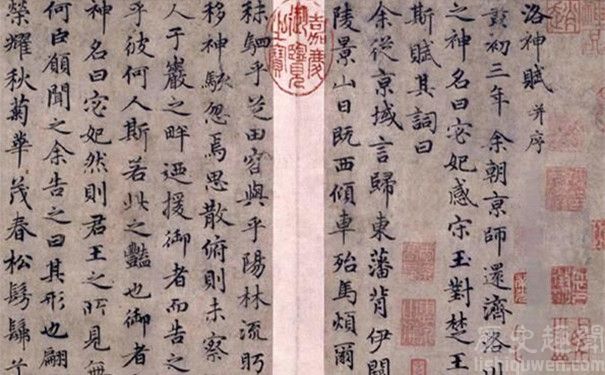 洛神賦 并序
黃初三年余朝京師還濟洛川
之神名曰宓妃感宋玉對楚王
斯賦其詞曰
余從京域言歸東藩背伊闕
陵景山日既西傾車殆馬煩爾
嘉慶御覽之寶
秣駟乎芝田容與乎陽林流眄
移神駭忽焉思散俯則未察
人于巖之畔迺援御者而告之
乎彼何人斯若此之豔也御者
神名曰宓妃然則君王之所見無
何臣願聞之余告之曰其形也翩
榮耀秋菊華茂春松髣髴兮
歷史趣聞
lishiquwen.com